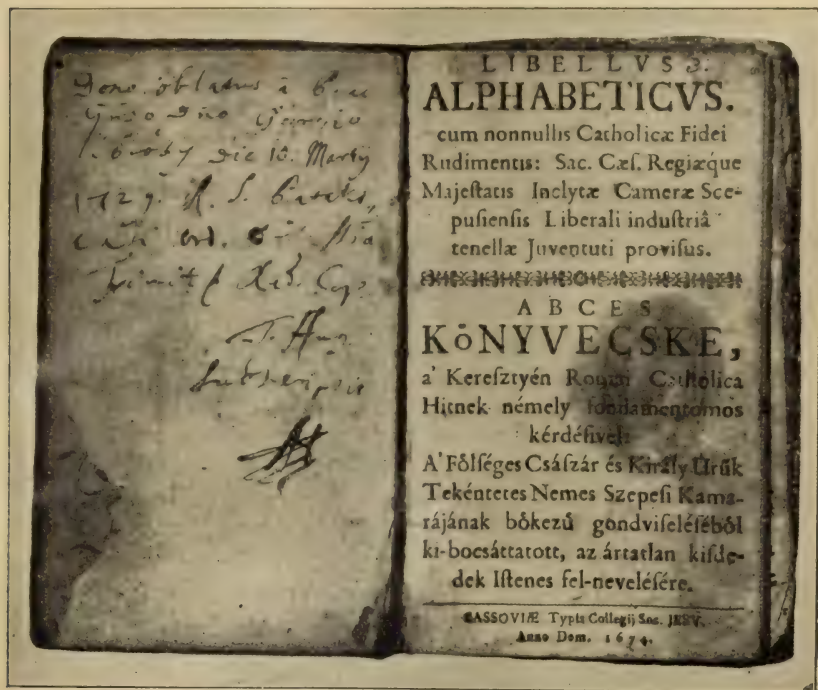 Dono oblatus à
Georgio
die 10. Martÿ
1729.
ord.
Subscripsit
LIBELLVS
ALPHABETICVS.
cum nonnullis Catholicæ Fidei
Rudimentis: Sac. Cæſ. Regiæque
Majeſtatis Inclytæ Cameræ Sce-
puſienſis Liberali induſtriâ
tenellæ Juventuti proviſus.
A B C E S
KöNYVECSKE,
a' Kereſztyén Romai Catholica
Hitnek némely fondamentomos
kérdéſivel:
A' Fölſéges Cſáſzár és Király Úrűk
Tekéntetes Nemes Szepeſi Kama-
rájának bőkezű gondviſeléſéből
ki-bocsáttatott, az ártatlan kiſde-
dek Iſtenes fel-neveléſére.
CASSOVIÆ Typis Collegij Soc. JESV.
Anno Dom. 1674.